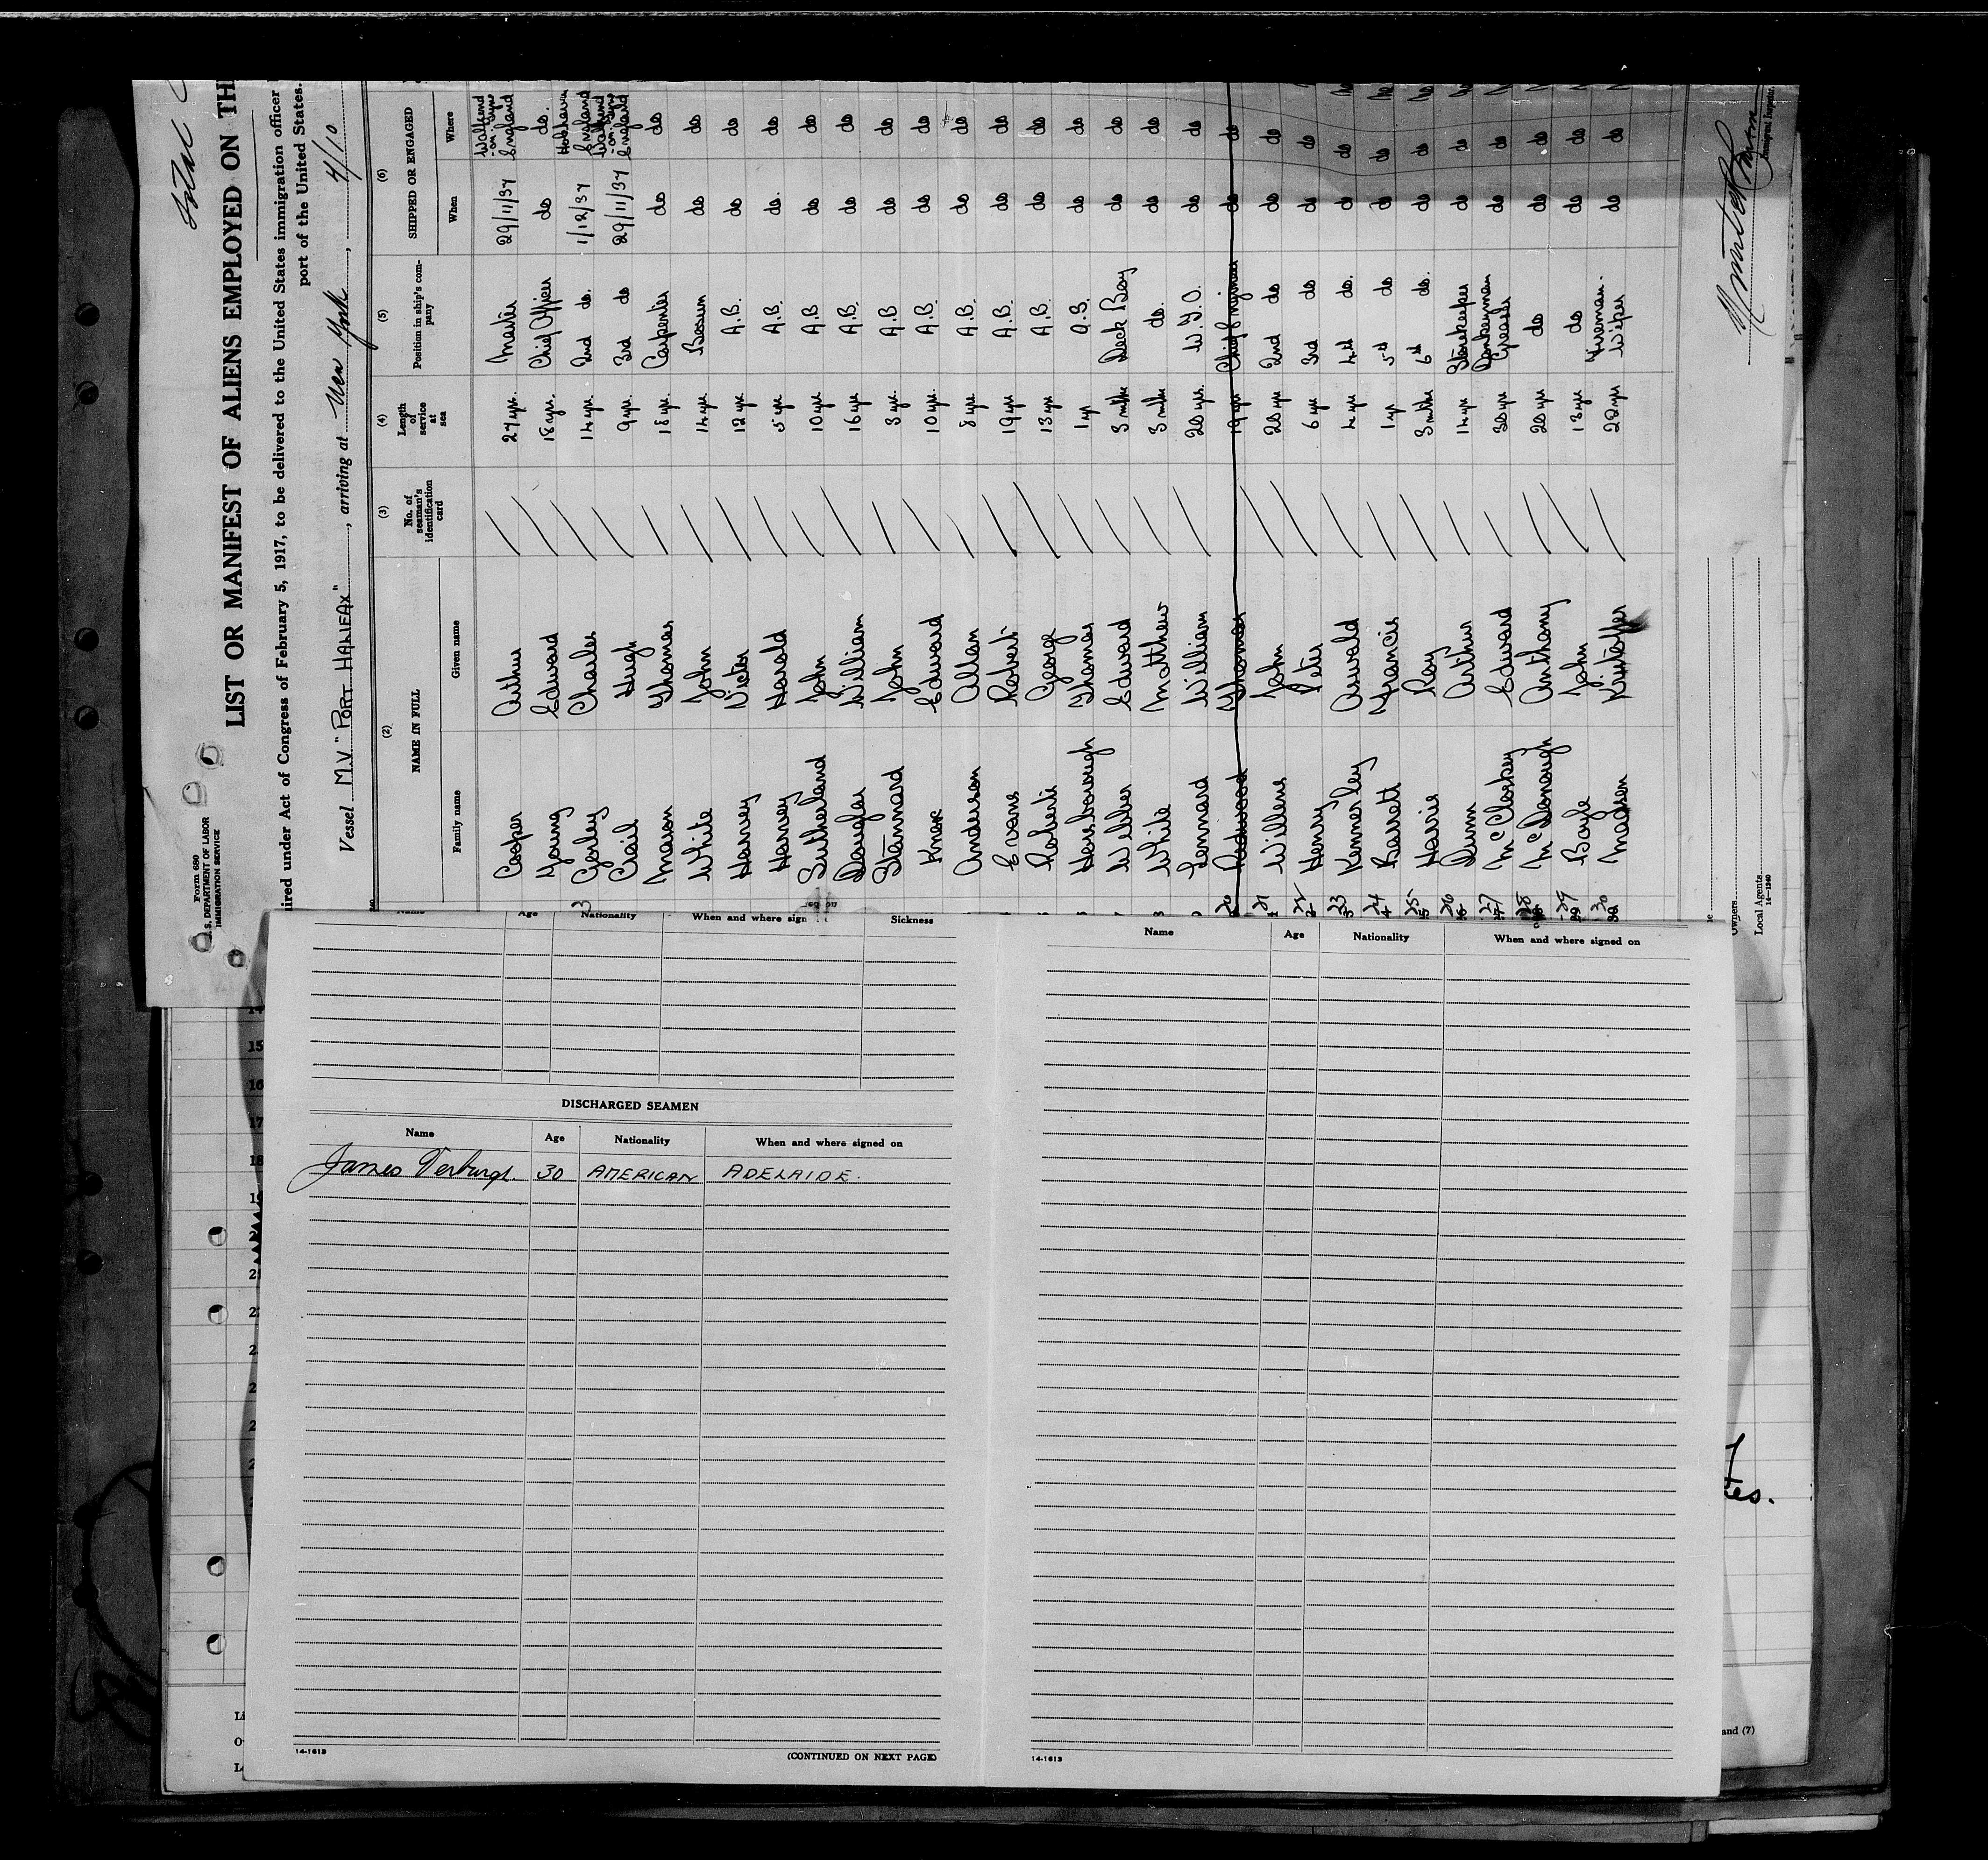 Form 680
U.S. DEPARTMENT OF LABOR
IMMIGRATION SERVICE
LIST OR MANIFEST OF ALIENS EMPLOYED ON TH
uired under Act of Congress of February 5, 1917, to be delivered to the United States immigration officer
port of the United States.
Vessel M.V "PORT HALIFAX", arriving at New York, 4/10
(2) (3) (4) (5) (6)
NAME IN FULL No. of seaman's identification card Length of service at sea Position in ship's company SHIPPED OR ENGAGED
Family name Given name When Where
Cooper Arthur 27 yrs. Master 29/11/37 Wallsend -on-Tyne England
Young Edward 18 yrs. Chief Officer do do.
Charles 14 yrs 2nd do. 1/12/37 England
Hugh 9 yrs. 3rd do 29/11/37 Wallsend -on-Tyne England
Mason Thomas 18 yrs Carpenter do do
White John 14 yrs Bosun do do
Harvey Victor 12 yrs A.B. do do
Harvey Harold 5 yrs A.B. do do
Sutherland John 10 yrs A.B do do
Douglas William 16 yrs A.B. do do
Stannard John 3 yrs. A.B do do
Knox Edward 10 yrs. A.B. do do
Anderson Allan 8 yrs A.B. do do
Evans Robert 19 yrs A.B. do do
Roberts George 13 yrs A.B. do do
Thomas 1 yr A.B. do do
Webber Edward 3 mths Deck Boy do do
White Matthew 3 mths do. do do
Lennard William 20 yrs. W.T.O. do do
20 Redwood Thomas 19 yrs Chief Engineer do do
21 Willens John 20 yrs 2nd do do do
22 Henry Peter 6 yrs 3rd do do do
23 Kennerley Oswald 4 yrs 4th do. do do
24 Barrett Francis 1 yr 5th do do do
25 Harris Roy 3 mths 6th do. do do
26 Dunn Arthur 14 yrs Storekeeper do do
27 McCloskey Edward 30 yrs Donkeyman Greaser do do
28 McDonough Anthony 20 yrs do do do
29 Boyle John 13 yrs do do do
30 Madsen Kristoffer 22 yrs Fireman Wiper do do
Immigrant Inspector.
Owners
Local Agents
14—1240
Name Age Nationality When and where sign Sickness
DISCHARGED SEAMEN
Name Age Nationality When and where signed on
James Terburgh. 30 AMERICAN ADELAIDE.
14-1613
(CONTINUED ON NEXT PAGE)
Name Age Nationality When and where signed on
14-1613
15
16
17
18
and (7)